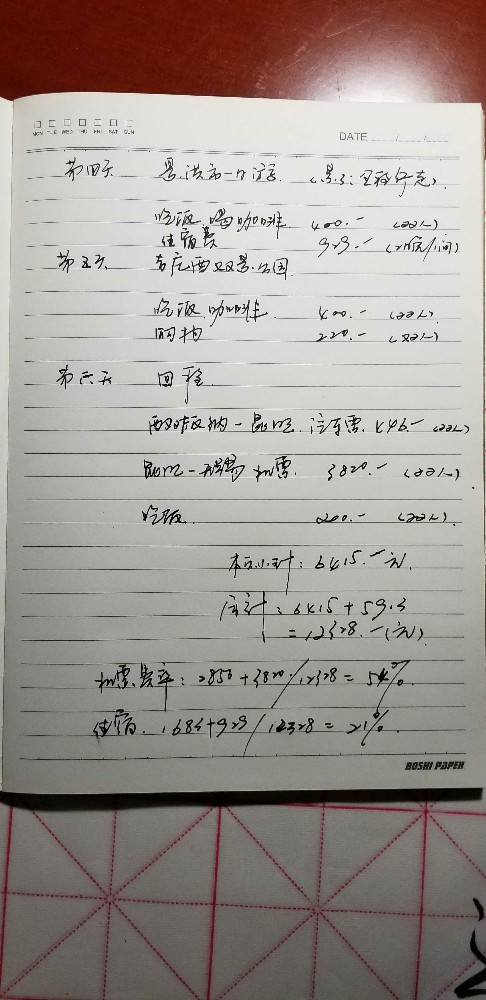 MON TUE WED THU FRI SAT SUN
DATE
第四天 景洪市一日游 (景
吃饭 喝咖啡 400.- (2人)
住宿费 929.-
第五天 西双 公园
吃饭 咖啡 400.- (2人)
网购 220.- (2人)
第六天 回程
西双版纳-昆明 汽车票 446.- (2人)
昆明-无锡 机票 3820.- (2人)
吃饭 200.- (2人)
本页小计: 6415.- 元
总计: 6415 + 5913
= 12328.- (元)
机票费率: 2850 + 3820 / 12328 = 54%
住宿. 1684+929 / 12328 = 21%
BOSHI PAPER